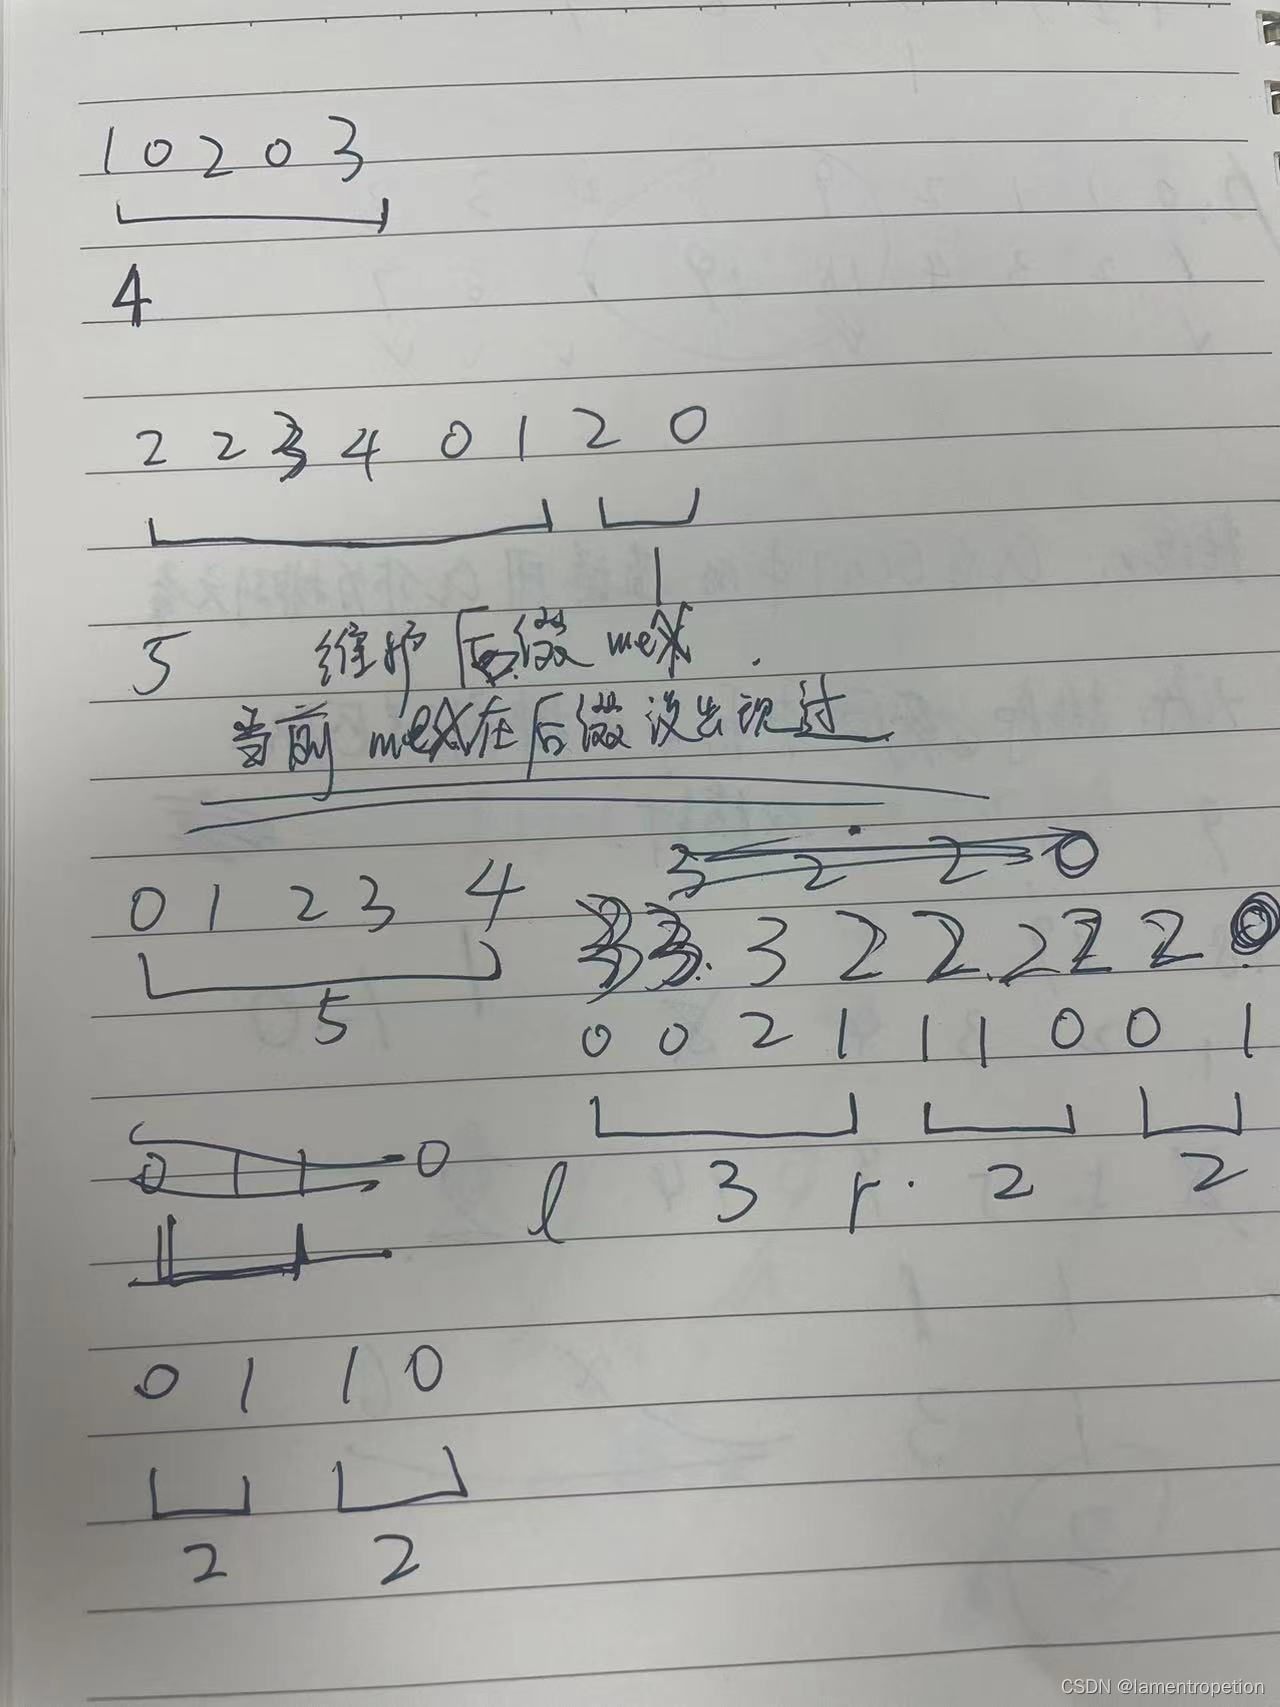 1 0 2 0 3
4
2 2 3 4 0 1 2 0
1
5 维护后缀 mex.
当前 mex在后缀没出现过
3 2 2 0
0 1 2 3 4
3 3. 3 2 2. 2 2 2 0
5
0 0 2 1 1 1 0 0 1
0 0
l 3 r. 2 2
0 1 1 0
2 2
CSDN @lamentropetion